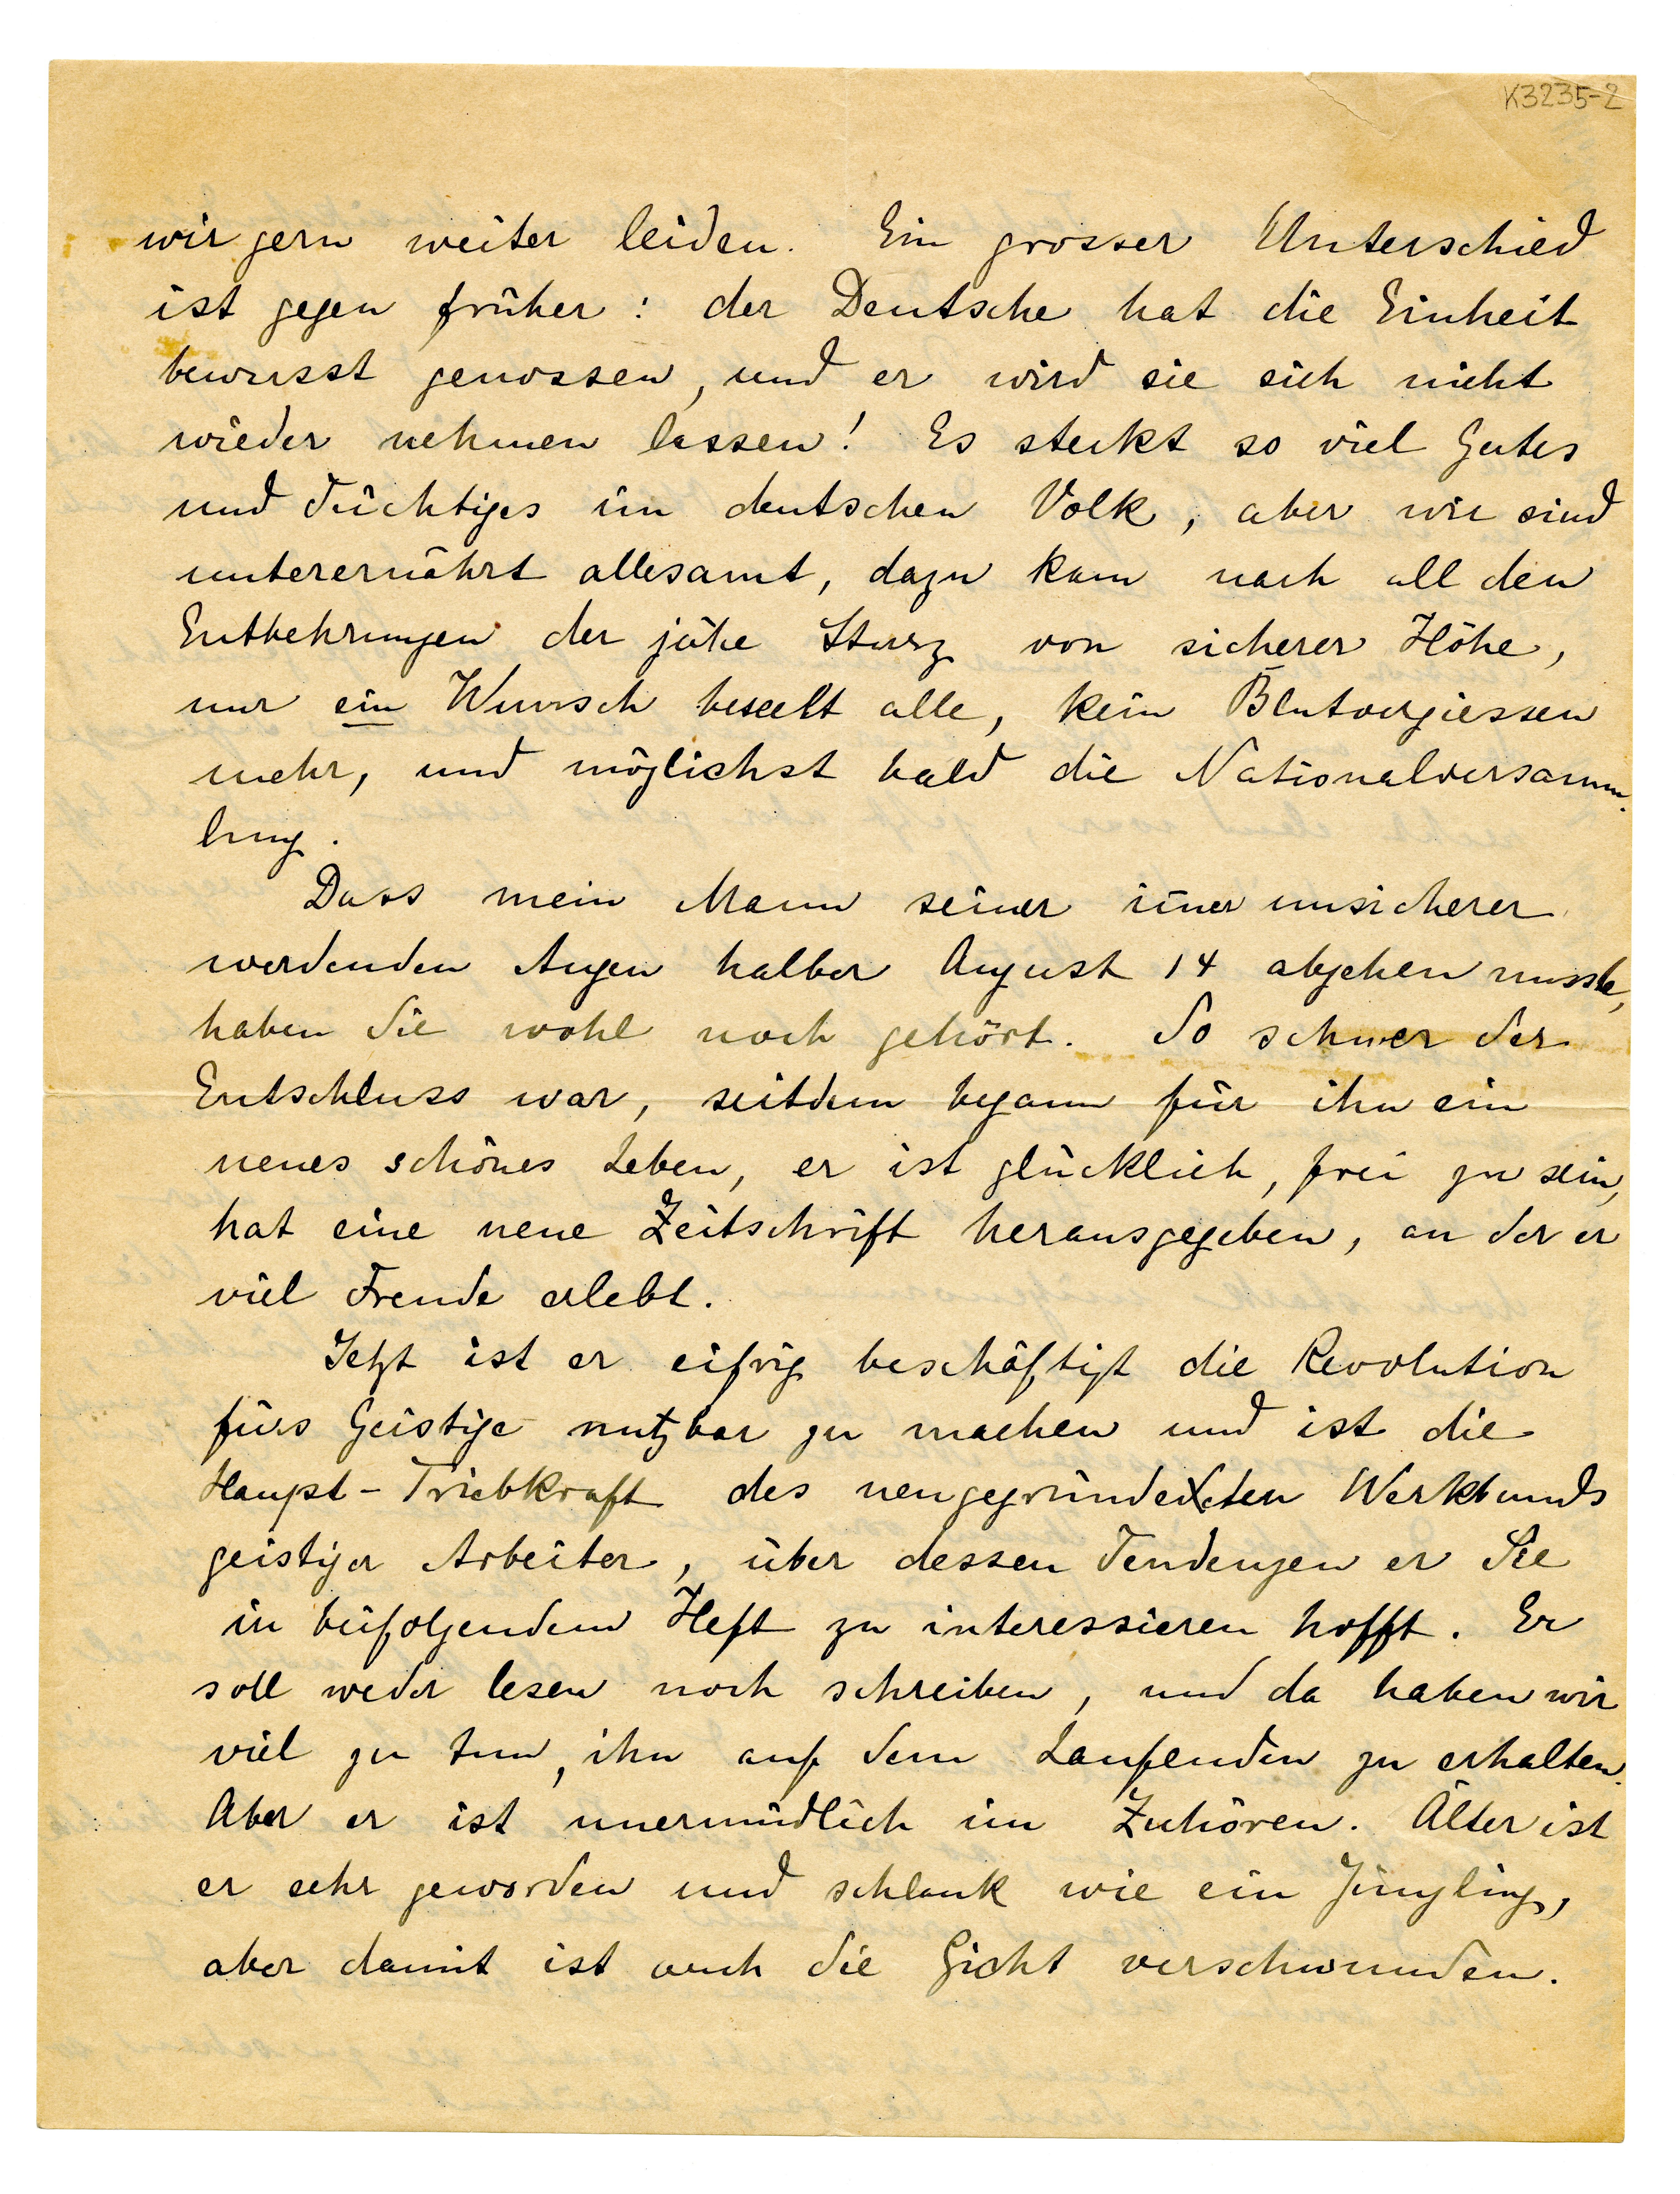 K3235-2
wir gern weiter leiden. Ein grosser Unterschied
ist gegen früher: der Deutsche hat die Einheit
bewusst genossen, und er wird sie sich nicht
wieder nehmen lassen! Es steckt so viel Gutes
und Tüchtiges im deutschen Volk, aber wir sind
unterernährt allesamt, dazu kam nach all den
Entbehrungen der jähe Sturz von sicherer Höhe,
nur ein Wunsch beseelt alle, kein Blutvergiessen
mehr, und möglichst bald die Nationalversamm-
lung.
Dass mein Mann seiner im̅er unsicherer
werdenden Augen halber August 14 abgehen musste,
haben Sie wohl noch gehört. So schwer der
Entschluss war, seitdem begann für ihn ein
neues schönes Leben, er ist glücklich, frei zu sein,
hat eine neue Zeitschrift herausgegeben, an der er
viel Freude erlebt.
Jetzt ist er eifrig beschäftigt die Revolution
fürs Geistige nutzbar zu machen und ist die
Haupt-Triebkraft des neugegründeten Werkbunds
geistiger Arbeiter, über dessen Tendenzen er Sie
in beifolgendem Heft zu interessieren hofft. Er
soll weder lesen noch schreiben, und da haben wir
viel zu tun, ihn auf dem Laufenden zu erhalten.
Aber er ist unermüdlich im Zuhören. Älter ist
er sehr geworden und schlank wie ein Jüngling,
aber damit ist auch die Gicht verschwunden.